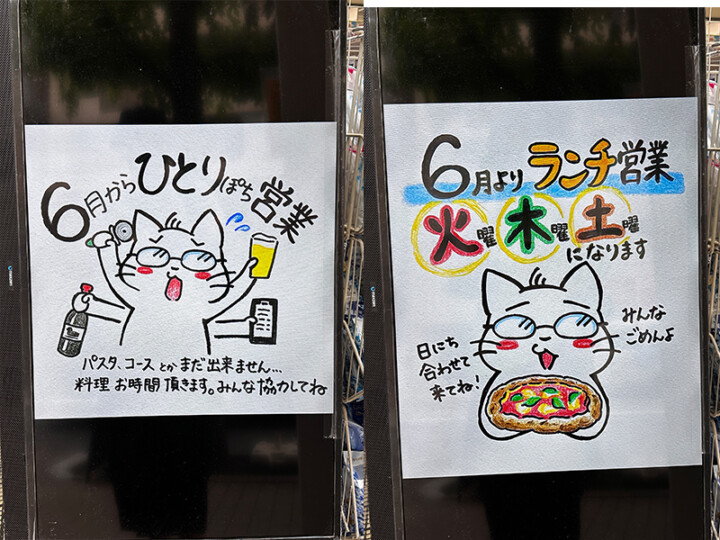 6月からひとりぽち営業
パスタ、コースとかまだ出来ません…
料理お時間頂きます。みんな協力してね
6月よりランチ営業
火曜木曜土曜
になります
みんな
ごめんよ
日にち
合わせて
来てね!